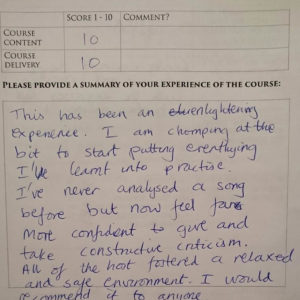 SCORE 1 - 10 COMMENT?
COURSE CONTENT 10
COURSE DELIVERY 10
PLEASE PROVIDE A SUMMARY OF YOUR EXPERIENCE OF THE COURSE:
This has been an enlightening
experience. I am chomping at the
bit to start putting everything
I've learnt into practise.
I've never analysed a song
before but now feel
more confident to give and
take constructive criticism.
All of the host fostered a relaxed
and safe environment. I would
recommend it to anyone